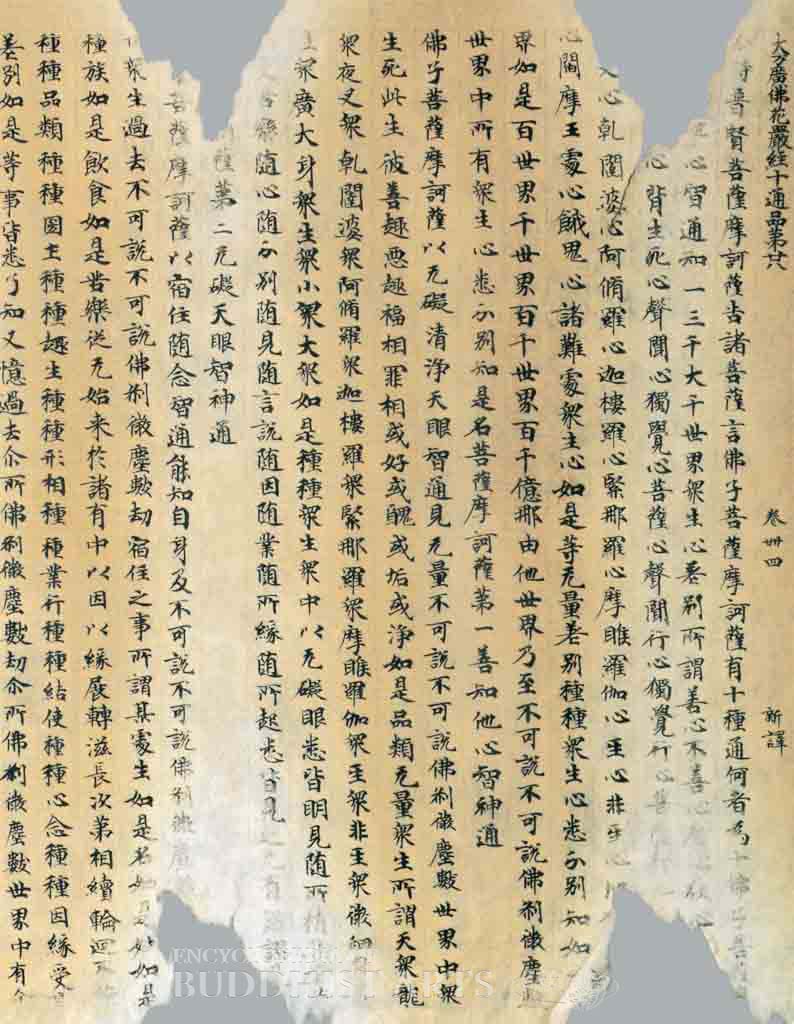 大方廣佛花嚴經十通品第廿八 卷卌四 新譯
時普賢菩薩摩訶薩告諸菩薩言佛子菩薩摩訶薩有十種通何者為十佛子菩
心智通知一三千大千世界衆生心差別所謂善心不善心
心背生死心聲聞心獨覺心菩薩心聲聞行心獨覺行心菩
叉心乾闥婆心阿脩羅心迦樓羅心緊那羅心摩睺羅伽心𤯔心非𤯔心
心閻摩王處心餓鬼心諸難處衆生心如是等无量差別種種衆生心悉分別知如
界如是百世界千世界百千世界百千億那由他世界乃至不可說不可說佛刹微塵
世界中所有衆生心悉分別知是名菩薩摩訶薩第一善知他心智神通
佛子菩薩摩訶薩以无礙清淨天眼智通見无量不可說不可說佛刹微塵數世界中衆
生死此生彼善趣惡趣福相罪相或好或醜或垢或淨如是品類无量衆生所謂天衆龍
衆夜叉衆乾闥婆衆阿脩羅衆迦樓羅衆緊那羅衆摩睺羅伽衆𤯔衆非𤯔衆微細
生衆廣大身衆生衆小衆大衆如是種種衆生衆中以无礙眼悉皆明見隨所積
隨心隨分別隨見隨言說隨因隨業隨所緣隨所起悉皆見
薩第二无礙天眼智神通
菩薩摩訶薩以宿住隨念智通能知自身及不可說不可說佛刹微塵
衆生過去不可說不可說佛刹微塵數劫宿住之事所謂某處生如是名如是如是
種族如是飲食如是苦樂從无始来於諸有中以因以緣展轉滋長次第相續輪迴
種種品類種種國土種種趣生種種形相種種業行種種結使種種心念種種因緣受
差別如是等事皆悉了知又憶過去尒所佛刹微塵數劫尒所佛刹微塵數世界中有
BUDDHIST ARTS